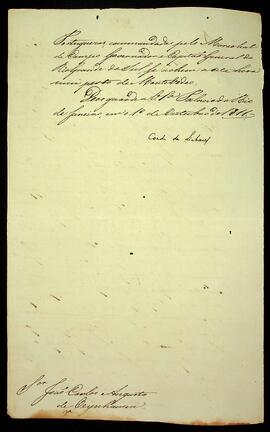 Portuguezas commandadas pelo Marechal
de Campo Governador e Capitão General do
Rio grande do Sul se achem a esta hora
mui perto de Montevideo.
Deos guarde a V. S.ª Palacio do Rio
de Janeiro, em 1º de Outubro de 1811.
Conde de Linhares
S.or João Carlos Augusto
de Oeynhausen